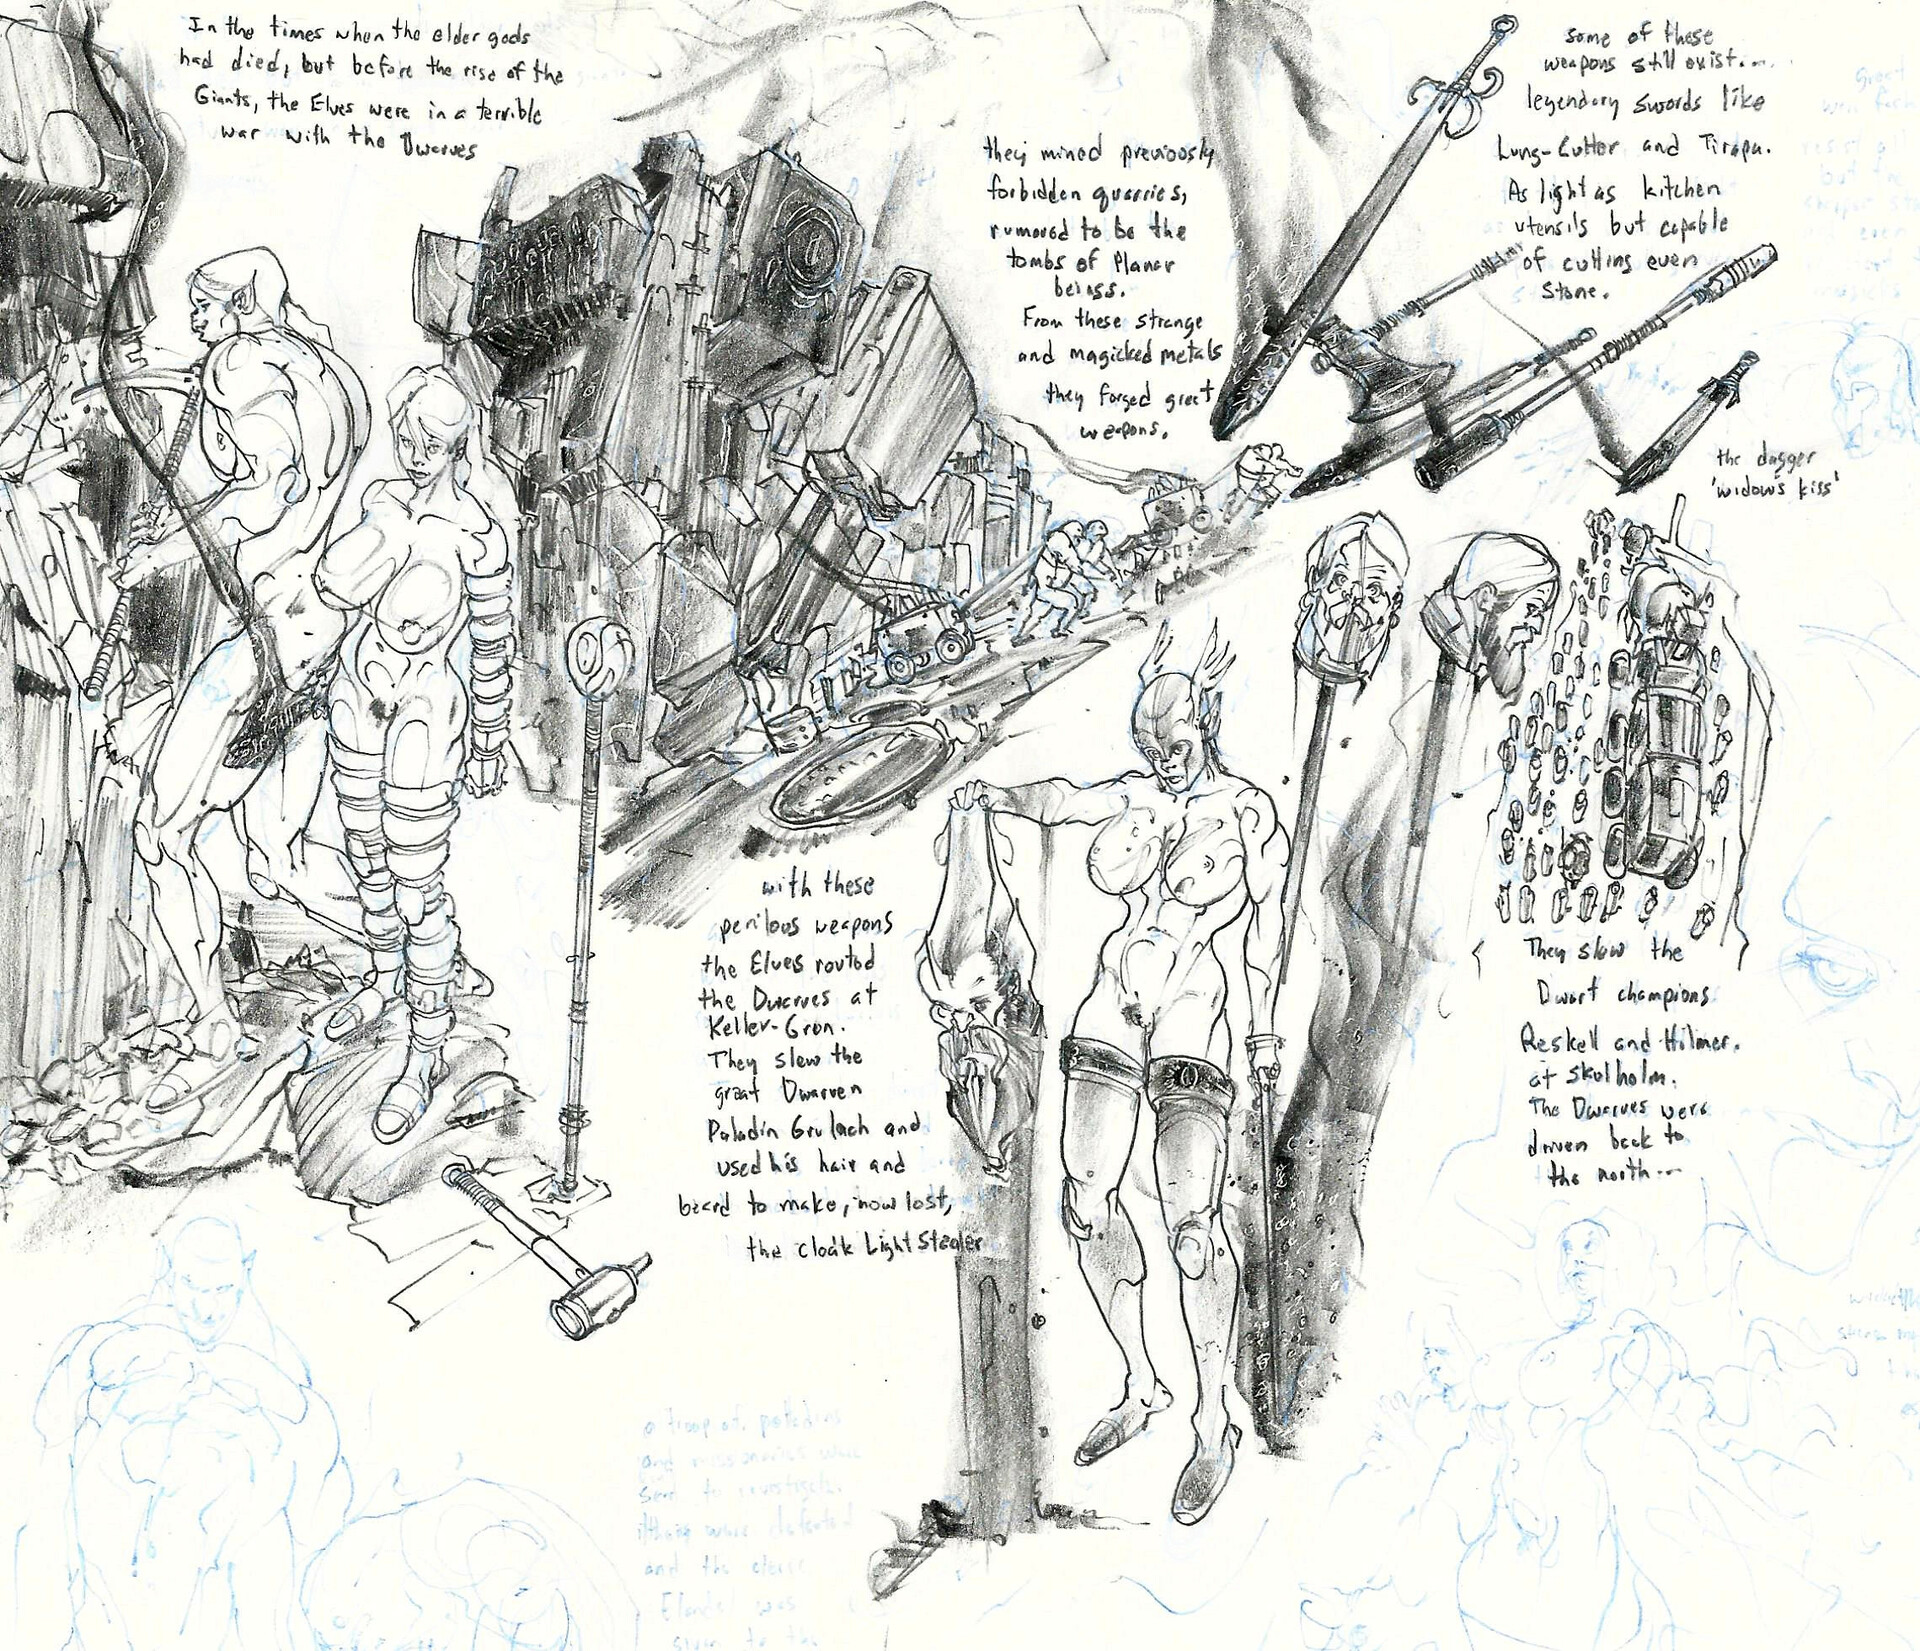 In the times when the elder gods
had died, but before the rise of the
Giants, the Elves were in a terrible
war with the Dwarves
they mined previously
forbidden quarries,
rumored to be the
tombs of Planar
beings.
From these strange
and magicked metals
they forged great
weapons.
some of these
weapons still exist...
legendary swords like
Lung-Cutter and Tirapu.
As light as kitchen
utensils but capable
of cutting even
stone.
the dagger
'widow's kiss'
with these
perilous weapons
the Elves routed
the Dwarves at
Keller-Gron.
They slew the
great Dwarven
Paladin Grulach and
used his hair and
beard to make, now lost,
the cloak Light Stealer
They slew the
Dwarf champions
Reskell and Hilmer.
at Skolholm.
The Dwarves were
driven back to
the north...
a troop of paladins
and missionaries were
sent to investigate.
were defeated
and the
was
to the